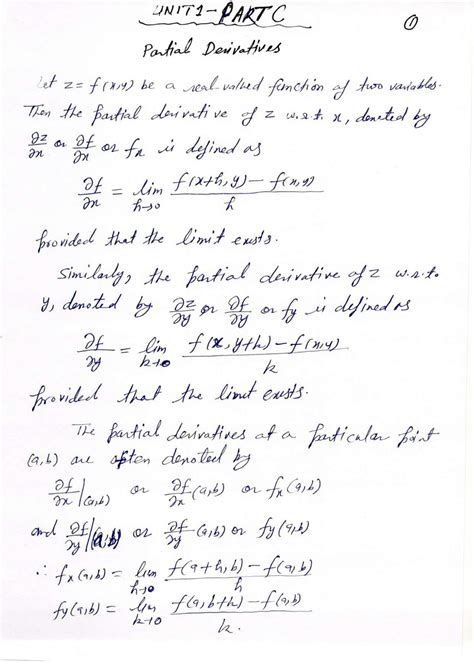 UNIT1-PART C
①
Partial Derivatives
Let z = f(x,y) be a real-valued function of two variables.
Then the partial derivative of z w.r.t. x, denoted by
∂z/∂x or ∂f/∂x or fx is defined as
∂f/∂x = lim h→0 f(x+h,y) - f(x,y) / h
provided that the limit exists.
Similarly, the partial derivative of z w.r.to
y, denoted by ∂z/∂y or ∂f/∂y or fy is defined as
∂f/∂y = lim k→0 f(x,y+k) - f(x,y) / k
provided that the limit exists.
The partial derivatives at a particular point
(a,b) are often denoted by
∂f/∂x|(a,b) or ∂f/∂x (a,b) or fx(a,b)
and ∂f/∂y|(a,b) or ∂f/∂y (a,b) or fy(a,b)
∴ fx(a,b) = lim h→0 f(a+h,b) - f(a,b) / h
fy(a,b) = lim k→0 f(a,b+k) - f(a,b) / k.